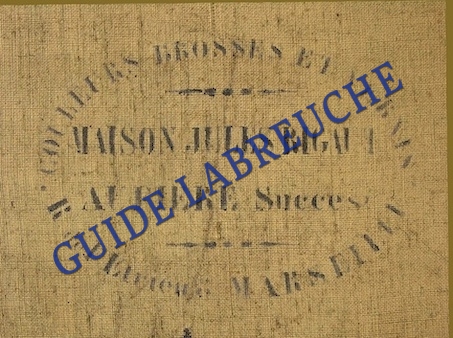 COULEURS BROSSES ET
MAISON JULES RIGAUT
Succes
MARSEILLE
GUIDE LABREUCHE